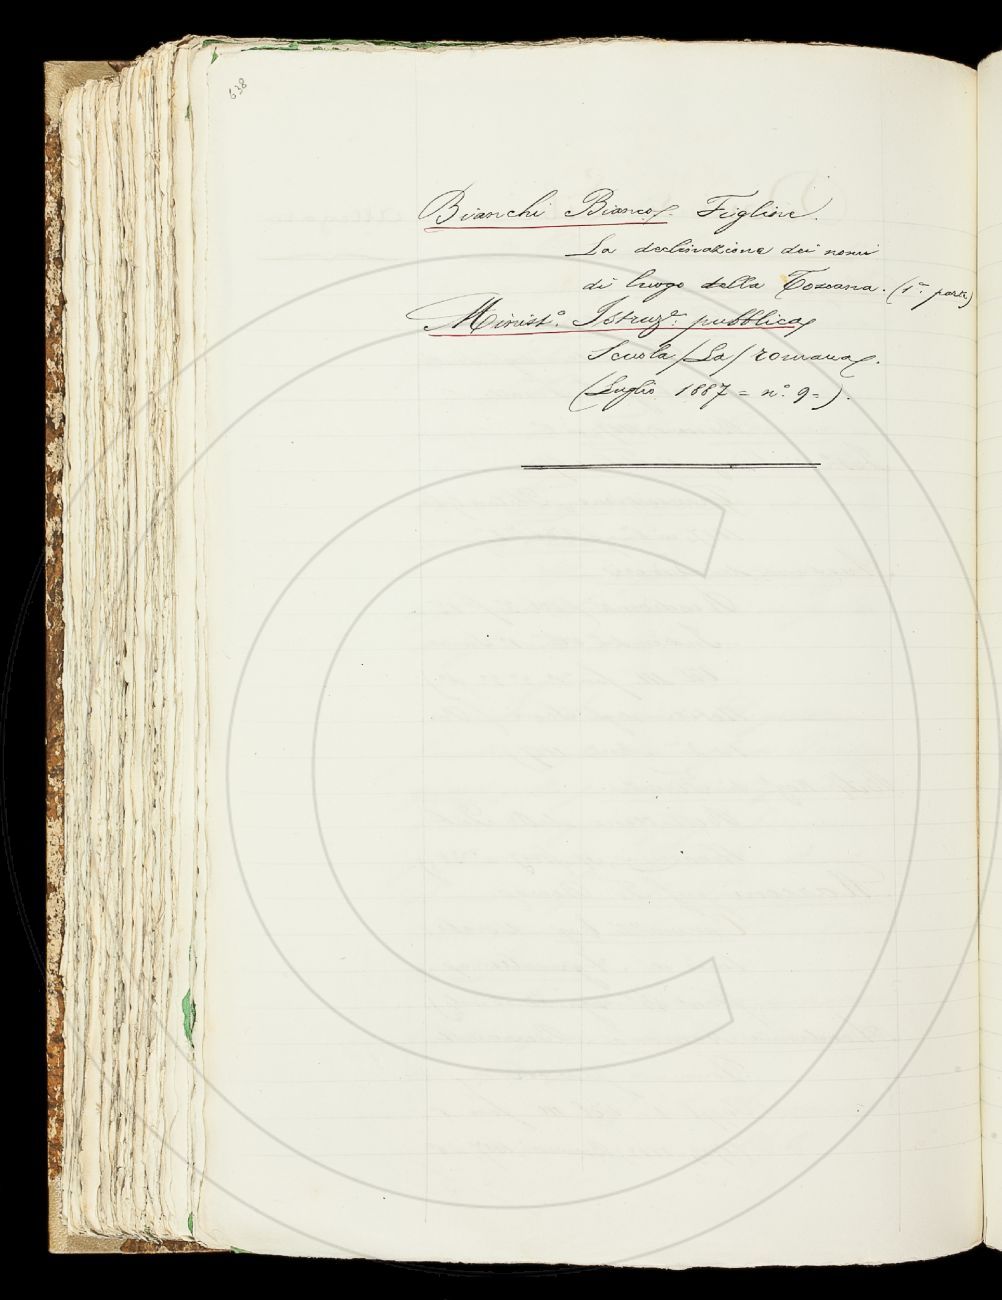 638
Bianchi Bianco. Figline.
La declinazione dei nomi
di luogo della Toscana. (1ª. parte)
Minist°. Istruzᵉ. pubblica
Scuola /La/ romana.
(Luglio 1887 = n°. 9 = ).